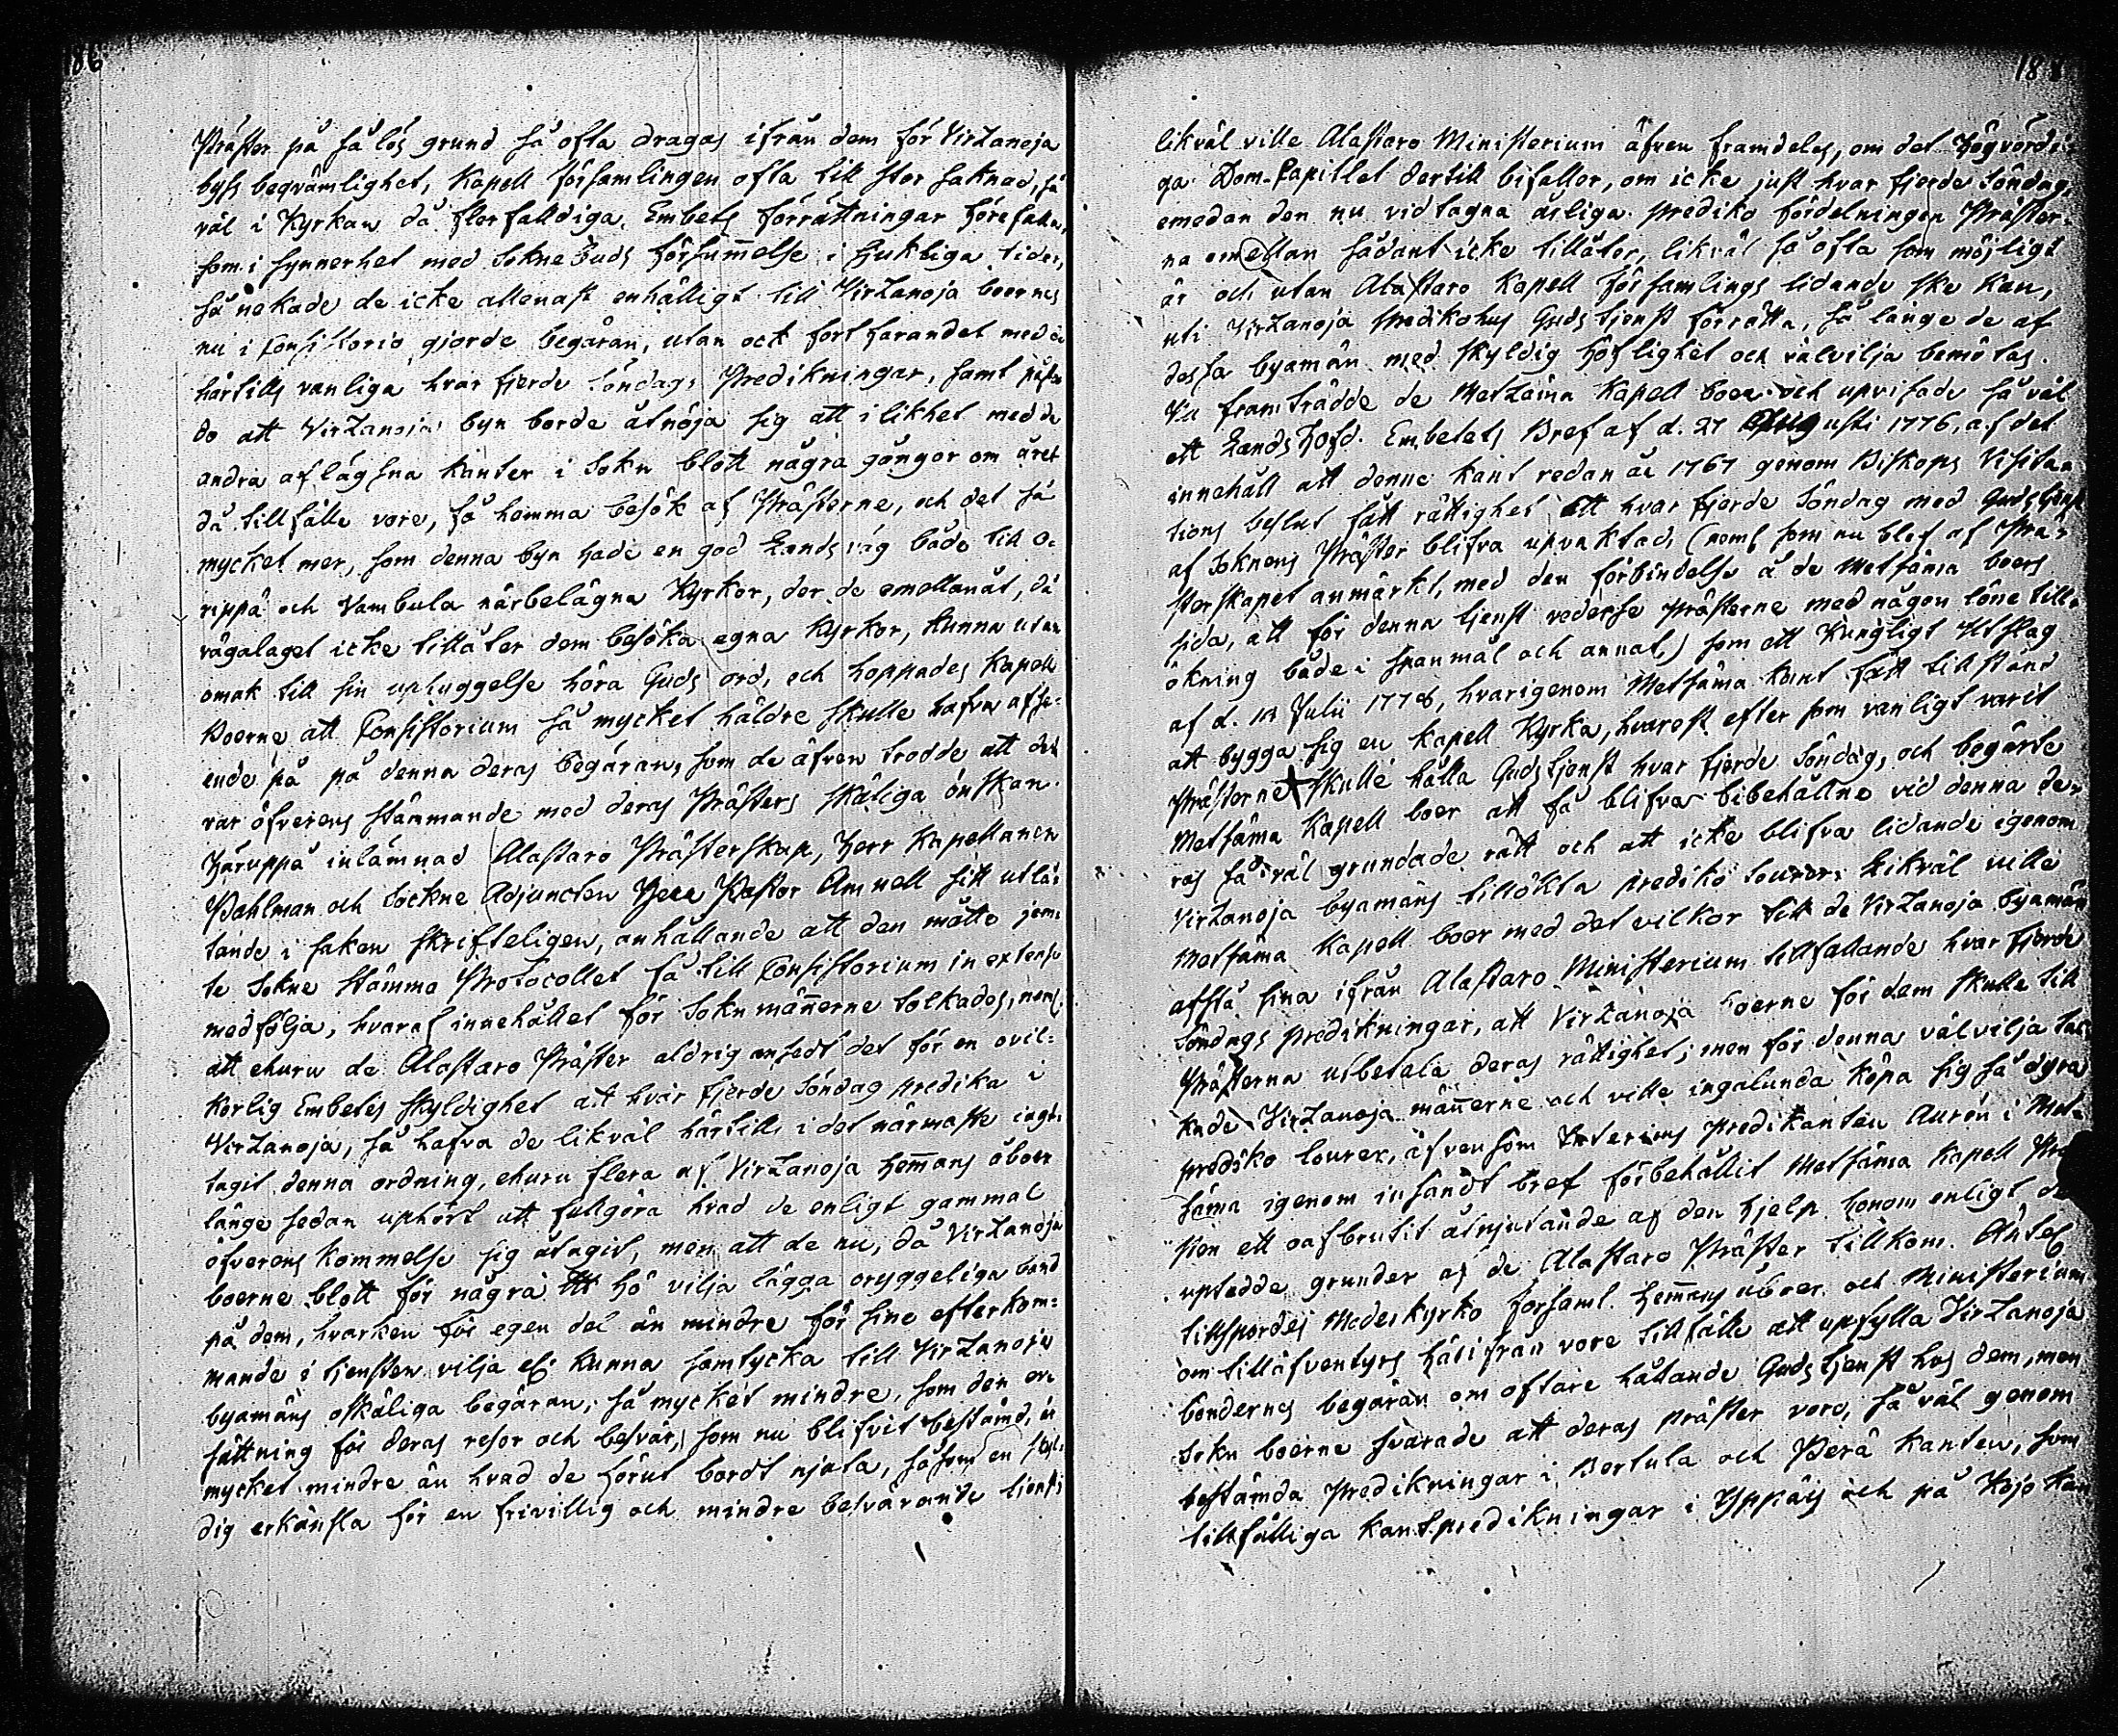 186
Präster på så lös grund så ofta dragas ifrån dem för Virtzanoja
bys beqvämlighet, Kapell församlingen ofta till stor saknad, så
väl i Kyrkan då flerfalldiga Embets förrättningar förefalla,
som i synnerhet med SokneBuds försummelse i sjukliga tider,
så nekade de icke allenast enhälligt till Virtzanoja boernes
nu i Consistorio gjorde begäran, utan ock fortfarandet med de
härtills vanliga hvar fjerde söndags Predikningar, samt
do att Virtzanoja byn borde åtnöja sig att i likhet med de
andra aflägsna kanter i Sokn blott några gångor om året
då tillfälle vore, få komma besök af Prästerne, och det så
mycket mer, som denna byn hade en god Landsväg både till O-
rippä och Vambula närbelägna Kyrkor, der de emellanåt, då
vägalaget icke tillåter dem besöka egna Kyrkor, kunna utan
omak till sin upbyggelse höra Guds ord, och hoppades Kapell
Boerne att Consistorium så mycket häldre skulle hafva afse-
ende på på denna deras begäran, som de äfven trodde att den
var öfverens stämmande med deras Prästers skäliga önskan.
Häruppå inlämnad Alastaro Prästerskap, Herr Kapellanen
Pahlman och Sockne Adjuncten Herr Pastor Amnell sitt utlå-
tande i saken skrifteligen, anhållande att den måtte jem-
te Sokne stämma Protocollet få till Consistorium in extenso
medfölja, hvaraf innehållet för Sokn männerne tolkades, neml.
att ehuru de Alastaro Präster aldrig ansedt det för en ovil-
korlig Embetes skyldighet att hvar fjerde Söndag predika i
Virtzanoja, så hafva de likväl härtills i det närmaste iagt-
tagit denna ordning, ehuru flera af Virtzanoja Hemmans åboer
länge sedan uphört att fullgöra hvad de enligt gammal
öfverens kommelse sig åtagit, men att de nu, då Virtzanoja
boerne blott för några ℔ Hö vilja lägga oryggeliga band
på dem, hvarken för egen del än mindre för sine efterkom-
mande i tjensten vilja el. kunna samtycka till Virtzanoja
byamäns oskäliga begäran, så mycket mindre, som den er-
sättning för deras resor och besvär, som nu blifvit bestämd, är
mycket mindre än hvad de förut bordt njuta, såsom en skyl-
dig erkänsla för en frivillig och mindre besvärande tjenst;
likväl ville Alastaro Ministerium äfven framdeles, om det Högvördi-
ga Dom-Capitlet dertill bifaller, om icke just hvar fjerde Söndag,
emedan den nu vidtagna årliga prediko fördelningen Präster-
na emellan sådant icke tillåter, likväl så ofta som möjligt
är och utan Alastaro Kapell Församlings lidande ske kan,
uti Virtzanoja Predikohus Guds tjenst förrätta, så länge de af
dessa byamän med skyldig höflighet och välvilja bemötas.
framträdde de Metzäma Kapell boer och upvisade så väl
ett Lands Höfd. Embetets Bref af d. 27 Augusti 1776, af det
innehåll att denne kant redan år 1767 genom Biskops Visita-
tions beslut fått rättighet att hvar fjerde Söndag med Gudstjenst
af Soknens Präster blifva upvaktad, (neml. som nu blef af Prä-
sterskapet anmärkt, med den förbindelse å de Metsäma boers
sida, att för denna tjenst vederse Prästerne med någon löne till-
ökning både i spanmål och annat,) som ett Kungligt Utslag
af d. Julii 1778, hvarigenom Metsäma kant fått tillstånd
att bygga sig en Kapell Kyrka, hvarest efter som vanligt varit
Prästerne skulle hålla Gudstjenst hvar fjerde Söndag, och begärte
Metsäma Kapell boer att få blifva bibehållne vid denna de-
ras så väl grundade rätt och att icke blifva lidande igenom
Virtzanoja byamäns tillökta prediko tourer. Likväl ville
Metsäma Kapell boer med det vilkor till de Virtzanoja byamän
afstå sina ifrån Alastaro Ministerium tillfallande hvar fjerde
Söndags predikningar, att Virtzanoja boerne för dem skulle till
Prästerna utbetala deras rättighet; men för denna välvilja tac-
kade Virtzanoja männerne och ville ingalunda köpa sig så dyra
prediko tourer, äfvensom Interims predikanten Aurén i Met-
säma igenom insändt bref förbehållit Metsäma Kapell
ett oafbrutit åtnjutande af den hjelp honom enligt
uptedde grunder af de Alastaro Präster tillkom.
tillspordes Moderkyrko Forsaml. Hemmans åboer och Ministerium
om tilläfventyrs härifrån vore tillfälle att upfylla Virtzanoja
böndernes begäran om oftare hållande Guds tjenst hos dem, men
Sokn boerne svarade att deras präster vore, så väl genom
bestämda Predikningar i Bertula och Perä kanten, som
tillfälliga kantpredikningar i Yppäis och på Kojo